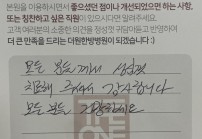 본원을 이용하시면서 좋으셨던 점이나 개선되었으면 하는 사항,
또는 칭찬하고 싶은 직원이 있으시다면 알려주세요.
고객 여러분의 소중한 의견을 정성껏 귀담아 듣고 반영하여
더 큰 만족을 드리는 더원한방병원이 되겠습니다 :)
모든 분들께서 성심껏
치료해 주셔서 감사합니다
모든 분들 칭찬하세요
THE
ONE